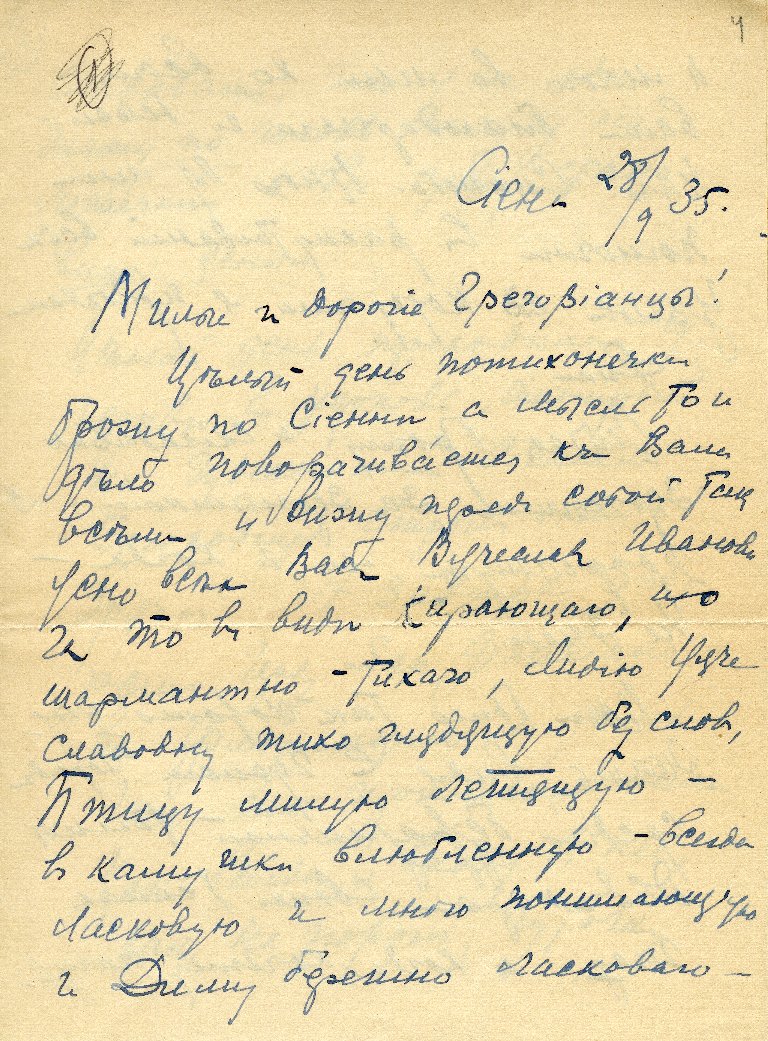 4
1
Сіена 28/9 35.
Милые и дорогіе Грегоріанцы!
Цѣлый день потихонечки
брожу по Сіенни а мысль то и
дѣло поворачивается къ Вамъ
всѣмъ и вижу предъ собой такъ
ясно всѣхъ Васъ Вячеслав Иванови
ча то въ види карающаго, то
шармантно - тихаго, Лидію Вяче
славовну тихо глядящую без слов,
Птицу милую летящую –
в камушки влюбленную - всегда
ласковую и много понимающую
и Диму бережно ласковаго –